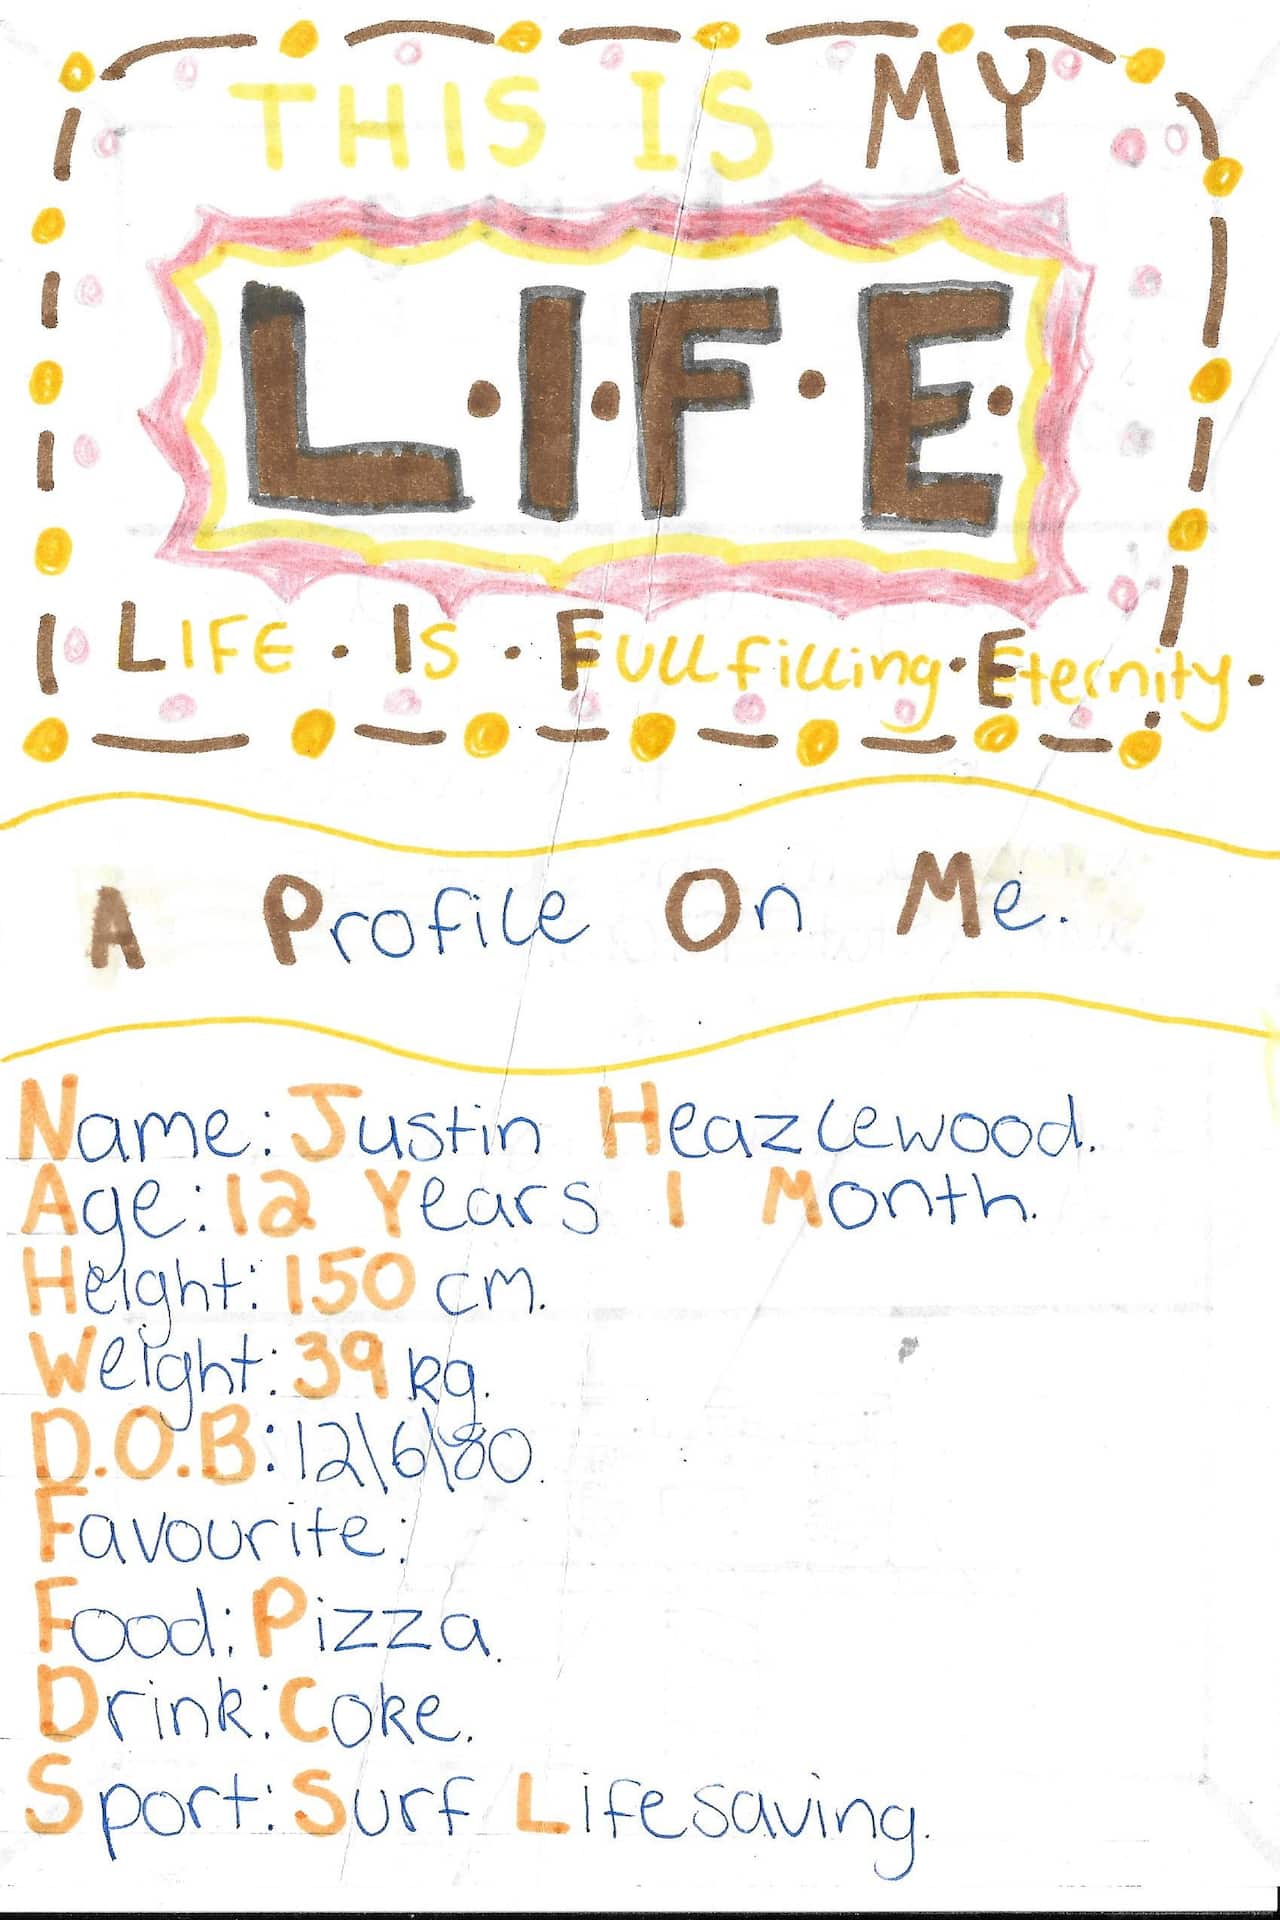 THIS IS MY
L.I.F.E.
LIFE. IS. FUllfilling. Eternity.
A Profile On Me.
Name: Justin Heazlewood.
Age: 12 Years 1 Month.
Height: 150 cm.
Weight: 39 kg.
D.O.B: 12\6\80.
Favourite:
Food: Pizza.
Drink: Coke.
Sport: Surf Lifesaving.